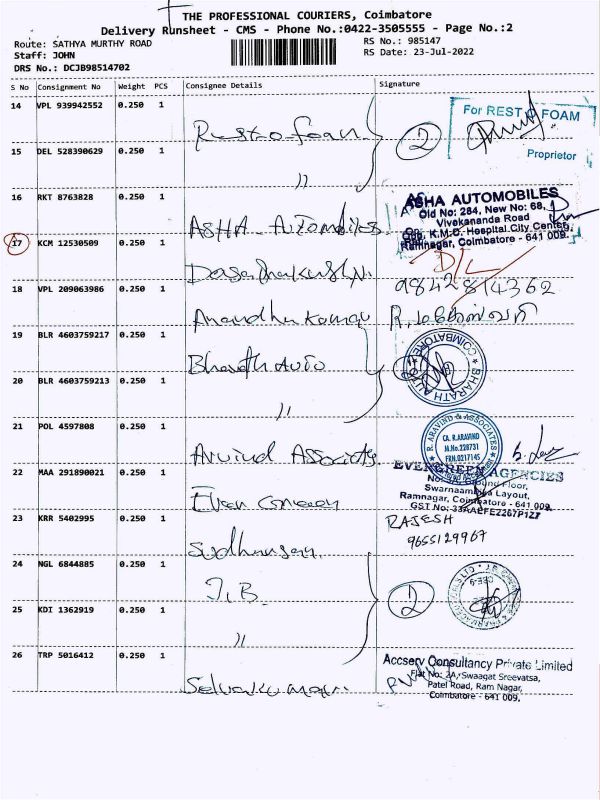 THE PROFESSIONAL COURIERS, Coimbatore
Delivery Runsheet - CMS - Phone No.:0422-3505555 - Page No.:2
Route: SATHYA MURTHY ROAD
RS No.: 985147
Staff: JOHN
RS Date: 23-Jul-2022
DRS No.: DCJB98514702
S No Consignment No Weight PCS Consignee Details Signature
14 VPL 939942552 0.250 1
Rest-o-foam 2
For REST O FOAM
Proprietor
15 DEL 528390629 0.250 1
"
16 RKT 8763828 0.250 1
ASHA Automobiles
ASHA AUTOMOBILES
Old No: 284, New No: 68,
Vivekananda Road
Opp. K.M.C. Hospital City Center,
Ramnagar, Coimbatore - 641 009.
17 KCM 12530509 0.250 1
D/L
9842814362
18 VPL 209063986 0.250 1
Anandhakumar R.
19 BLR 4603759217 0.250 1
Bharath Auto
BHARATH AUTO
COIMBATORE
20 BLR 4603759213 0.250 1
"
21 POL 4597808 0.250 1
Arvind Associates
R. ARAVIND & ASSOCIATES
CA. R.ARAVIND
M.No.228731
FRN.0217145
22 MAA 291890021 0.250 1
EVERGREEN AGENCIES
Ground Floor,
Swarnaambika Layout,
Ramnagar, Coimbatore - 641 009.
GST No: 33AAEFE2267P1Z7
23 KRR 5402995 0.250 1
RAJESH
9655129967
24 NGL 6844885 0.250 1
J.B. 2
25 KDI 1362919 0.250 1
"
26 TRP 5016412 0.250 1
Selvakumar
Accserv Consultancy Private Limited
Flat No: 2A, Swaagat Sreevatsa,
Patel Road, Ram Nagar,
Coimbatore - 641 009.